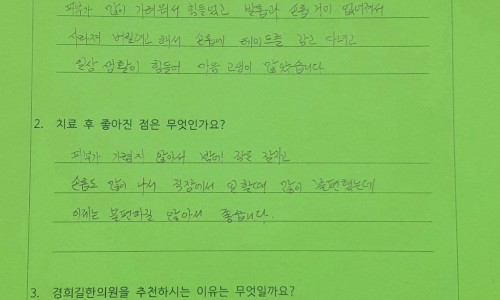 피부가 많이 가려워서 힘들었고 발톱과 손톱 거의 없어져서
사라져 버릴려고 해서 손톱에 테이프를 감고 다니고
일상 생활이 힘들어 마음 고생이 많았습니다
2. 치료 후 좋아진 점은 무엇인가요?
피부가 가렵지 않아서 밤에 잠을 잘자고
손톱도 많이 나서 직장에서 일 할때 많이 불편했는데
이제는 불편하질 않아서 좋습니다.
3. 경희길한의원을 추천하시는 이유는 무엇일까요?